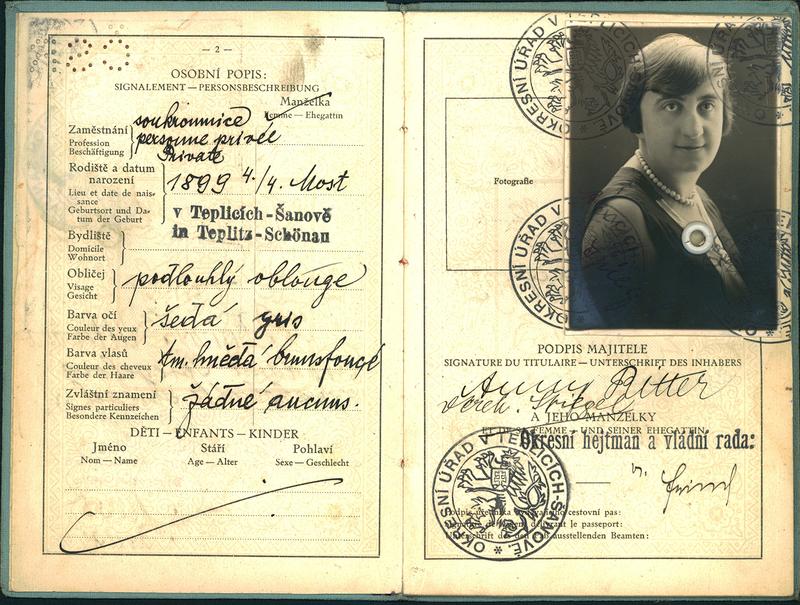 — 2 —
OSOBNÍ POPIS:
SIGNALEMENT — PERSONSBESCHREIBUNG
Manželka
Femme — Ehegattin
Zaměstnání
Profession
Beschäftigung
soukromnice
personne privée
Private
Rodiště a datum
narození
Lieu et date de nais-
sance
Geburtsort und Da-
tum der Geburt
1899 4./4. Most
v Teplicích-Šanově
in Teplitz-Schönau
Bydliště
Domicile
Wohnort
Obličej
Visage
Gesicht
podlouhlý oblonge
Barva očí
Couleur des yeux
Farbe der Augen
šedá gris
Barva vlasů
Couleur des cheveux
Farbe der Haare
tm. hnědá brunsfoncé
Zvláštní znamení
Signes particuliers
Besondere Kennzeichen
žádné aucuns.
DĚTI — ENFANTS — KINDER
Jméno Stáří Pohlaví
Nom — Name Age — Alter Sexe — Geschlecht
Fotografie
OKRESNÍ ÚŘAD V TEPLICÍCH-ŠANOVĚ
OKRESNÍ ÚŘAD V
PODPIS MAJITELE
SIGNATURE DU TITULAIRE — UNTERSCHRIFT DES INHABERS
Anny Ritter
A JEHO MANŽELKY
ET DE SA FEMME — UND SEINER EHEGATTIN
Okresní hejtman a vládní rada:
OKRESNÍ ÚŘAD V TEPLICÍCH-ŠANOVĚ
cestovní pas:
le passeport:
ausstellenden Beamten: